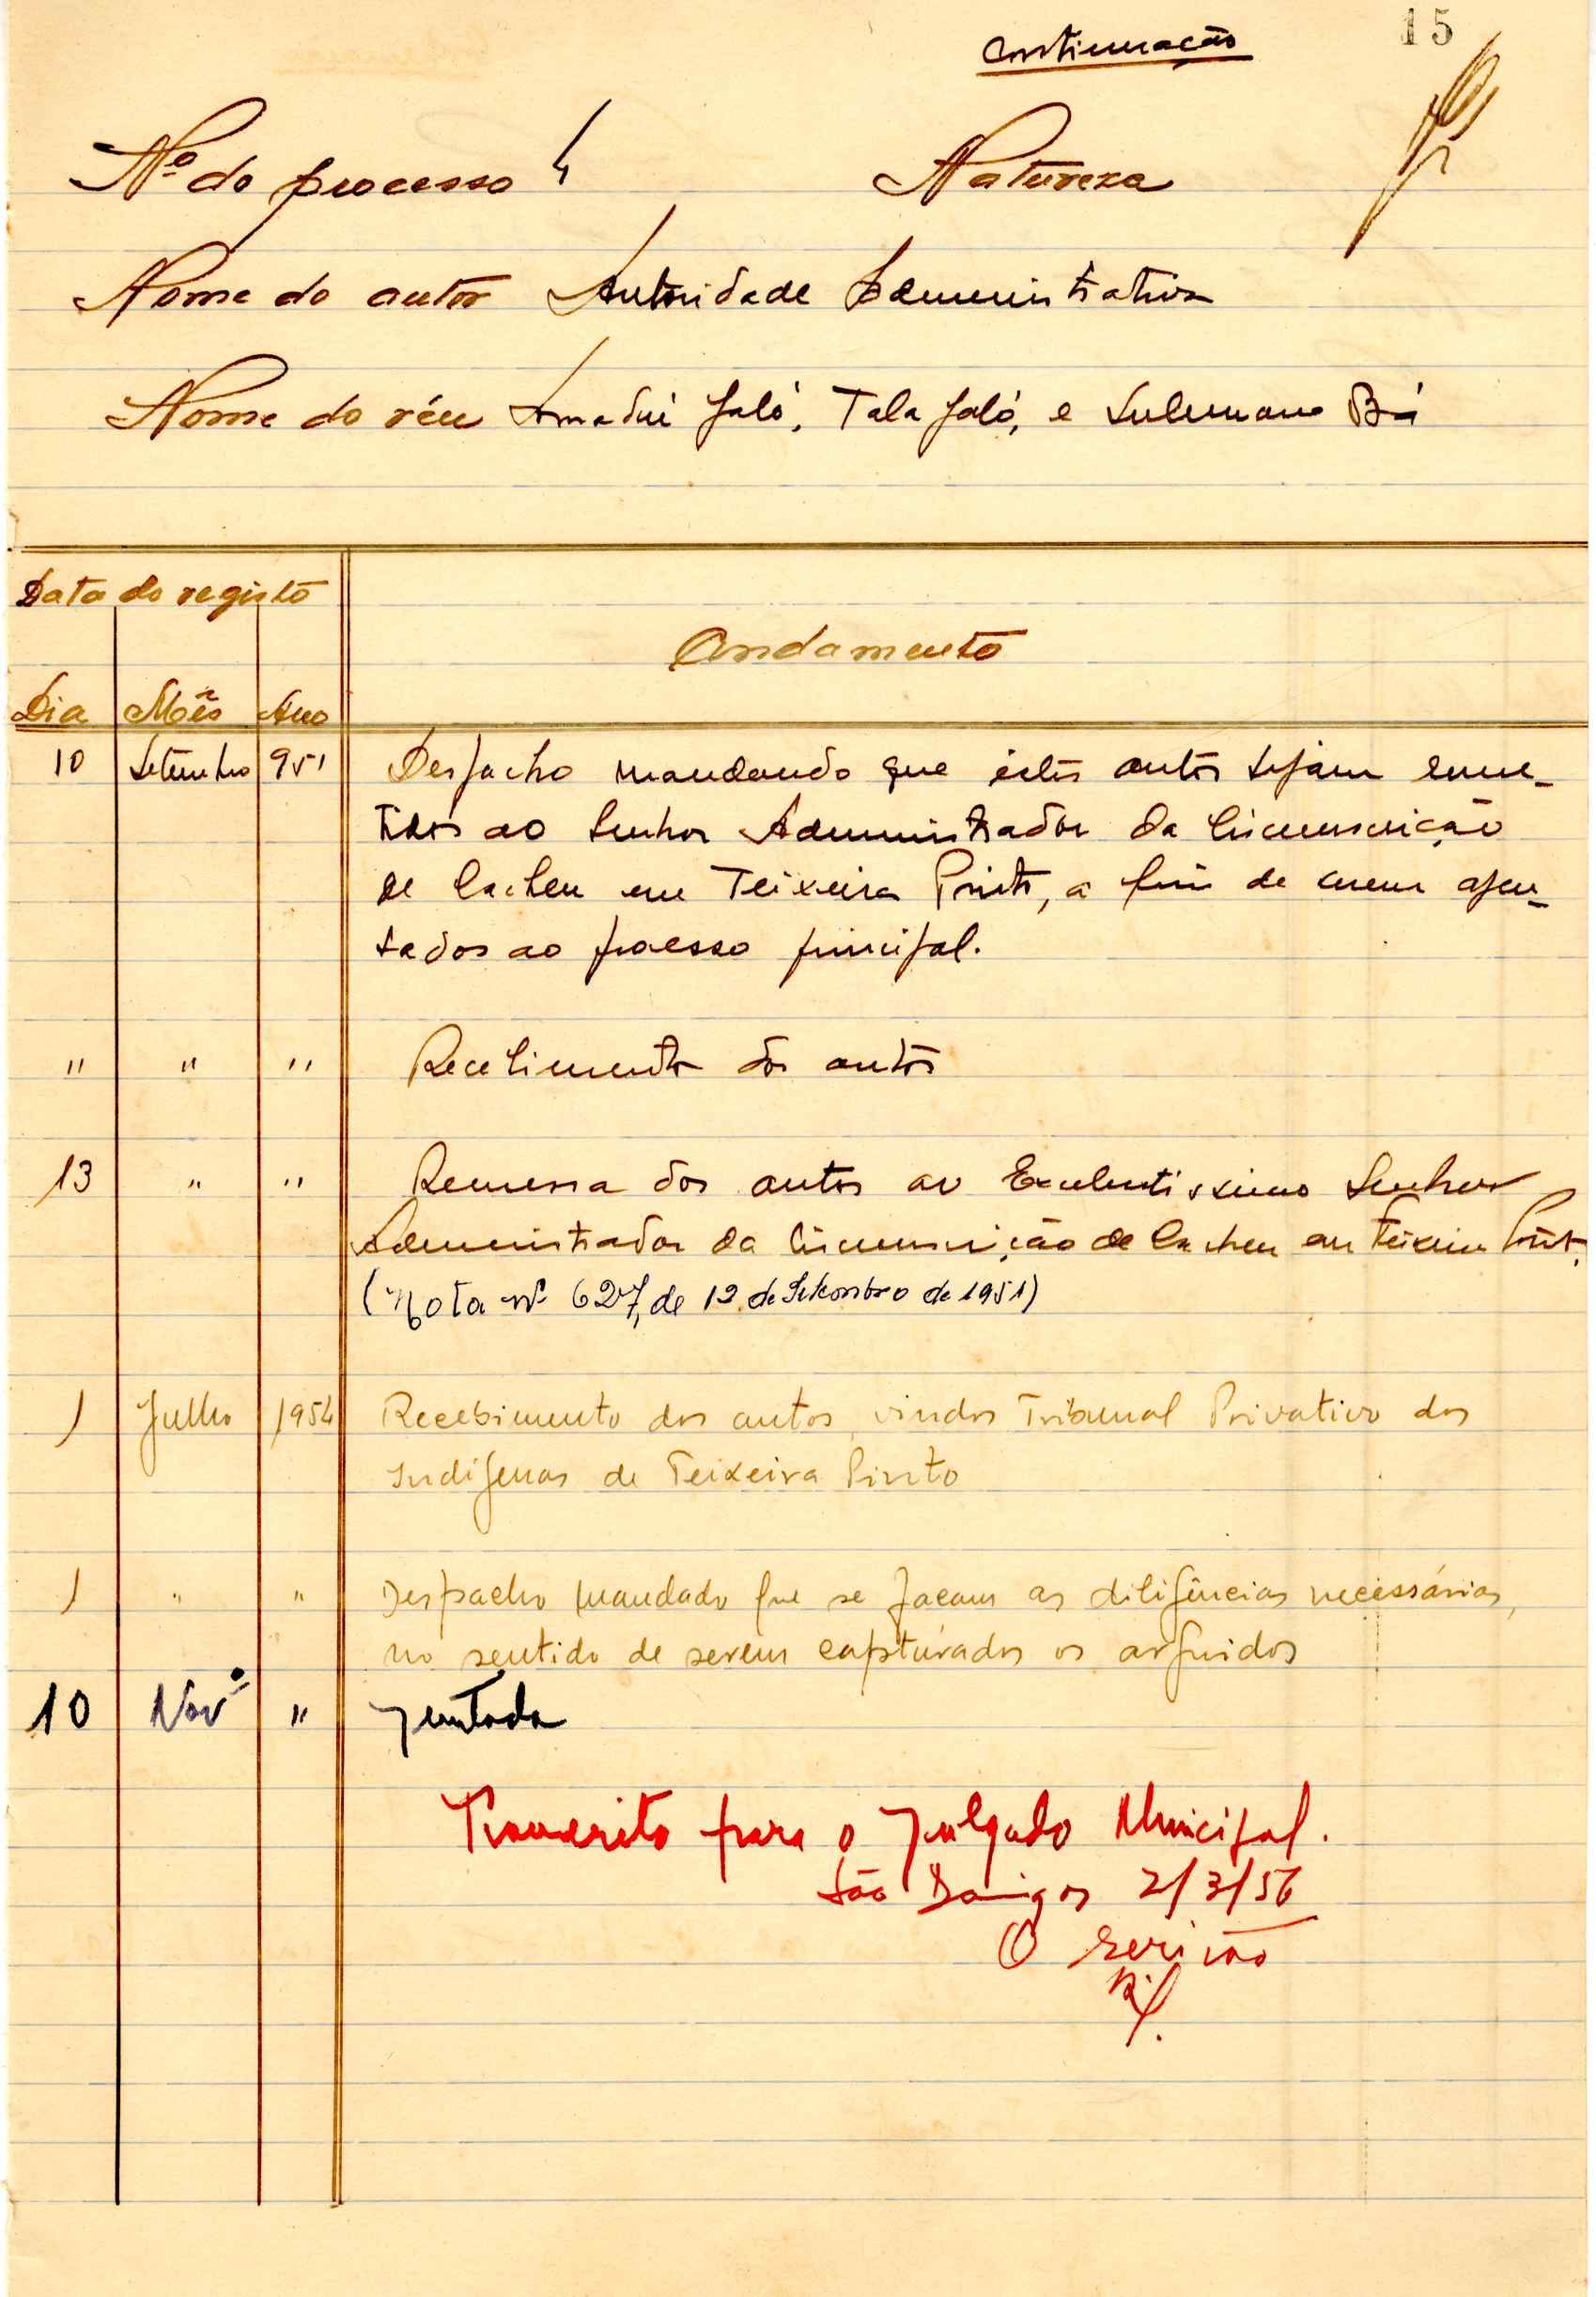 15
Continuação
Nº do processo 4 Natureza
Nome do autor Autoridade Administrativa
Nome do réu Amadú Jaló, Tala Jaló, e Sulemane Bá
Data do registo
Andamento
Dia Mês Ano
10 Setembro 951 Despacho mandando que êstes autos sejam reme-
tidos ao Senhor Administrador da Circunscrição
de Cacheu em Teixeira Pinto, a fim de serem apen-
sados ao processo principal.
" " " Recebimento dos autos
13 " " Remessa dos autos ao Excelentissimo Senhor
Administrador da Circunscrição de Cacheu em Teixeira Pinto.
(Nota nº 627, de 12 de Setembro de 1951)
1 Julho 1954 Recebimento dos autos, vindos Tribunal Privativo dos
Indígenas de Teixeira Pinto
1 " " Despacho mandado que se façam as diligências necessárias,
no sentido de serem capturados os arguidos
10 Novº " Juntada
Transcrito para o Julgado Municipal.
São Domingos 2/3/56
O Escrivão